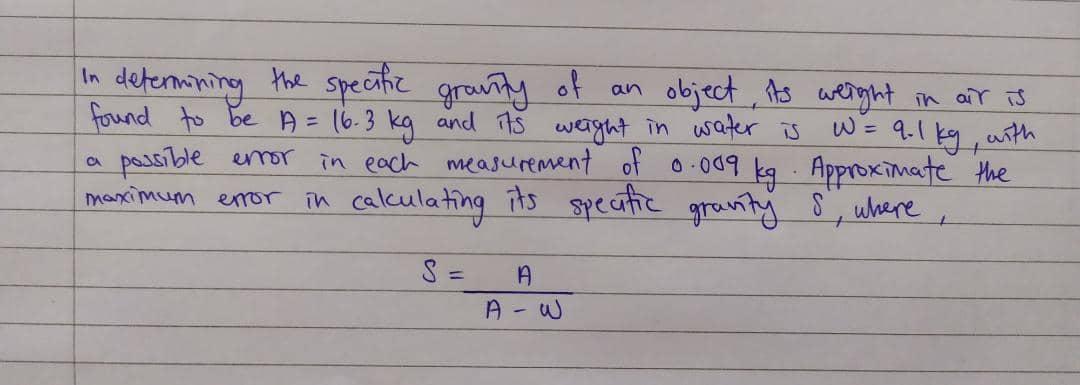 In determining the specific gravity of an object, its weight in air is
found to be A = 16.3 kg and its weight in water is W = 9.1 kg, with
a possible error in each measurement of 0.009 kg. Approximate the
maximum error in calculating its specific gravity S, where,
S = A
A - W